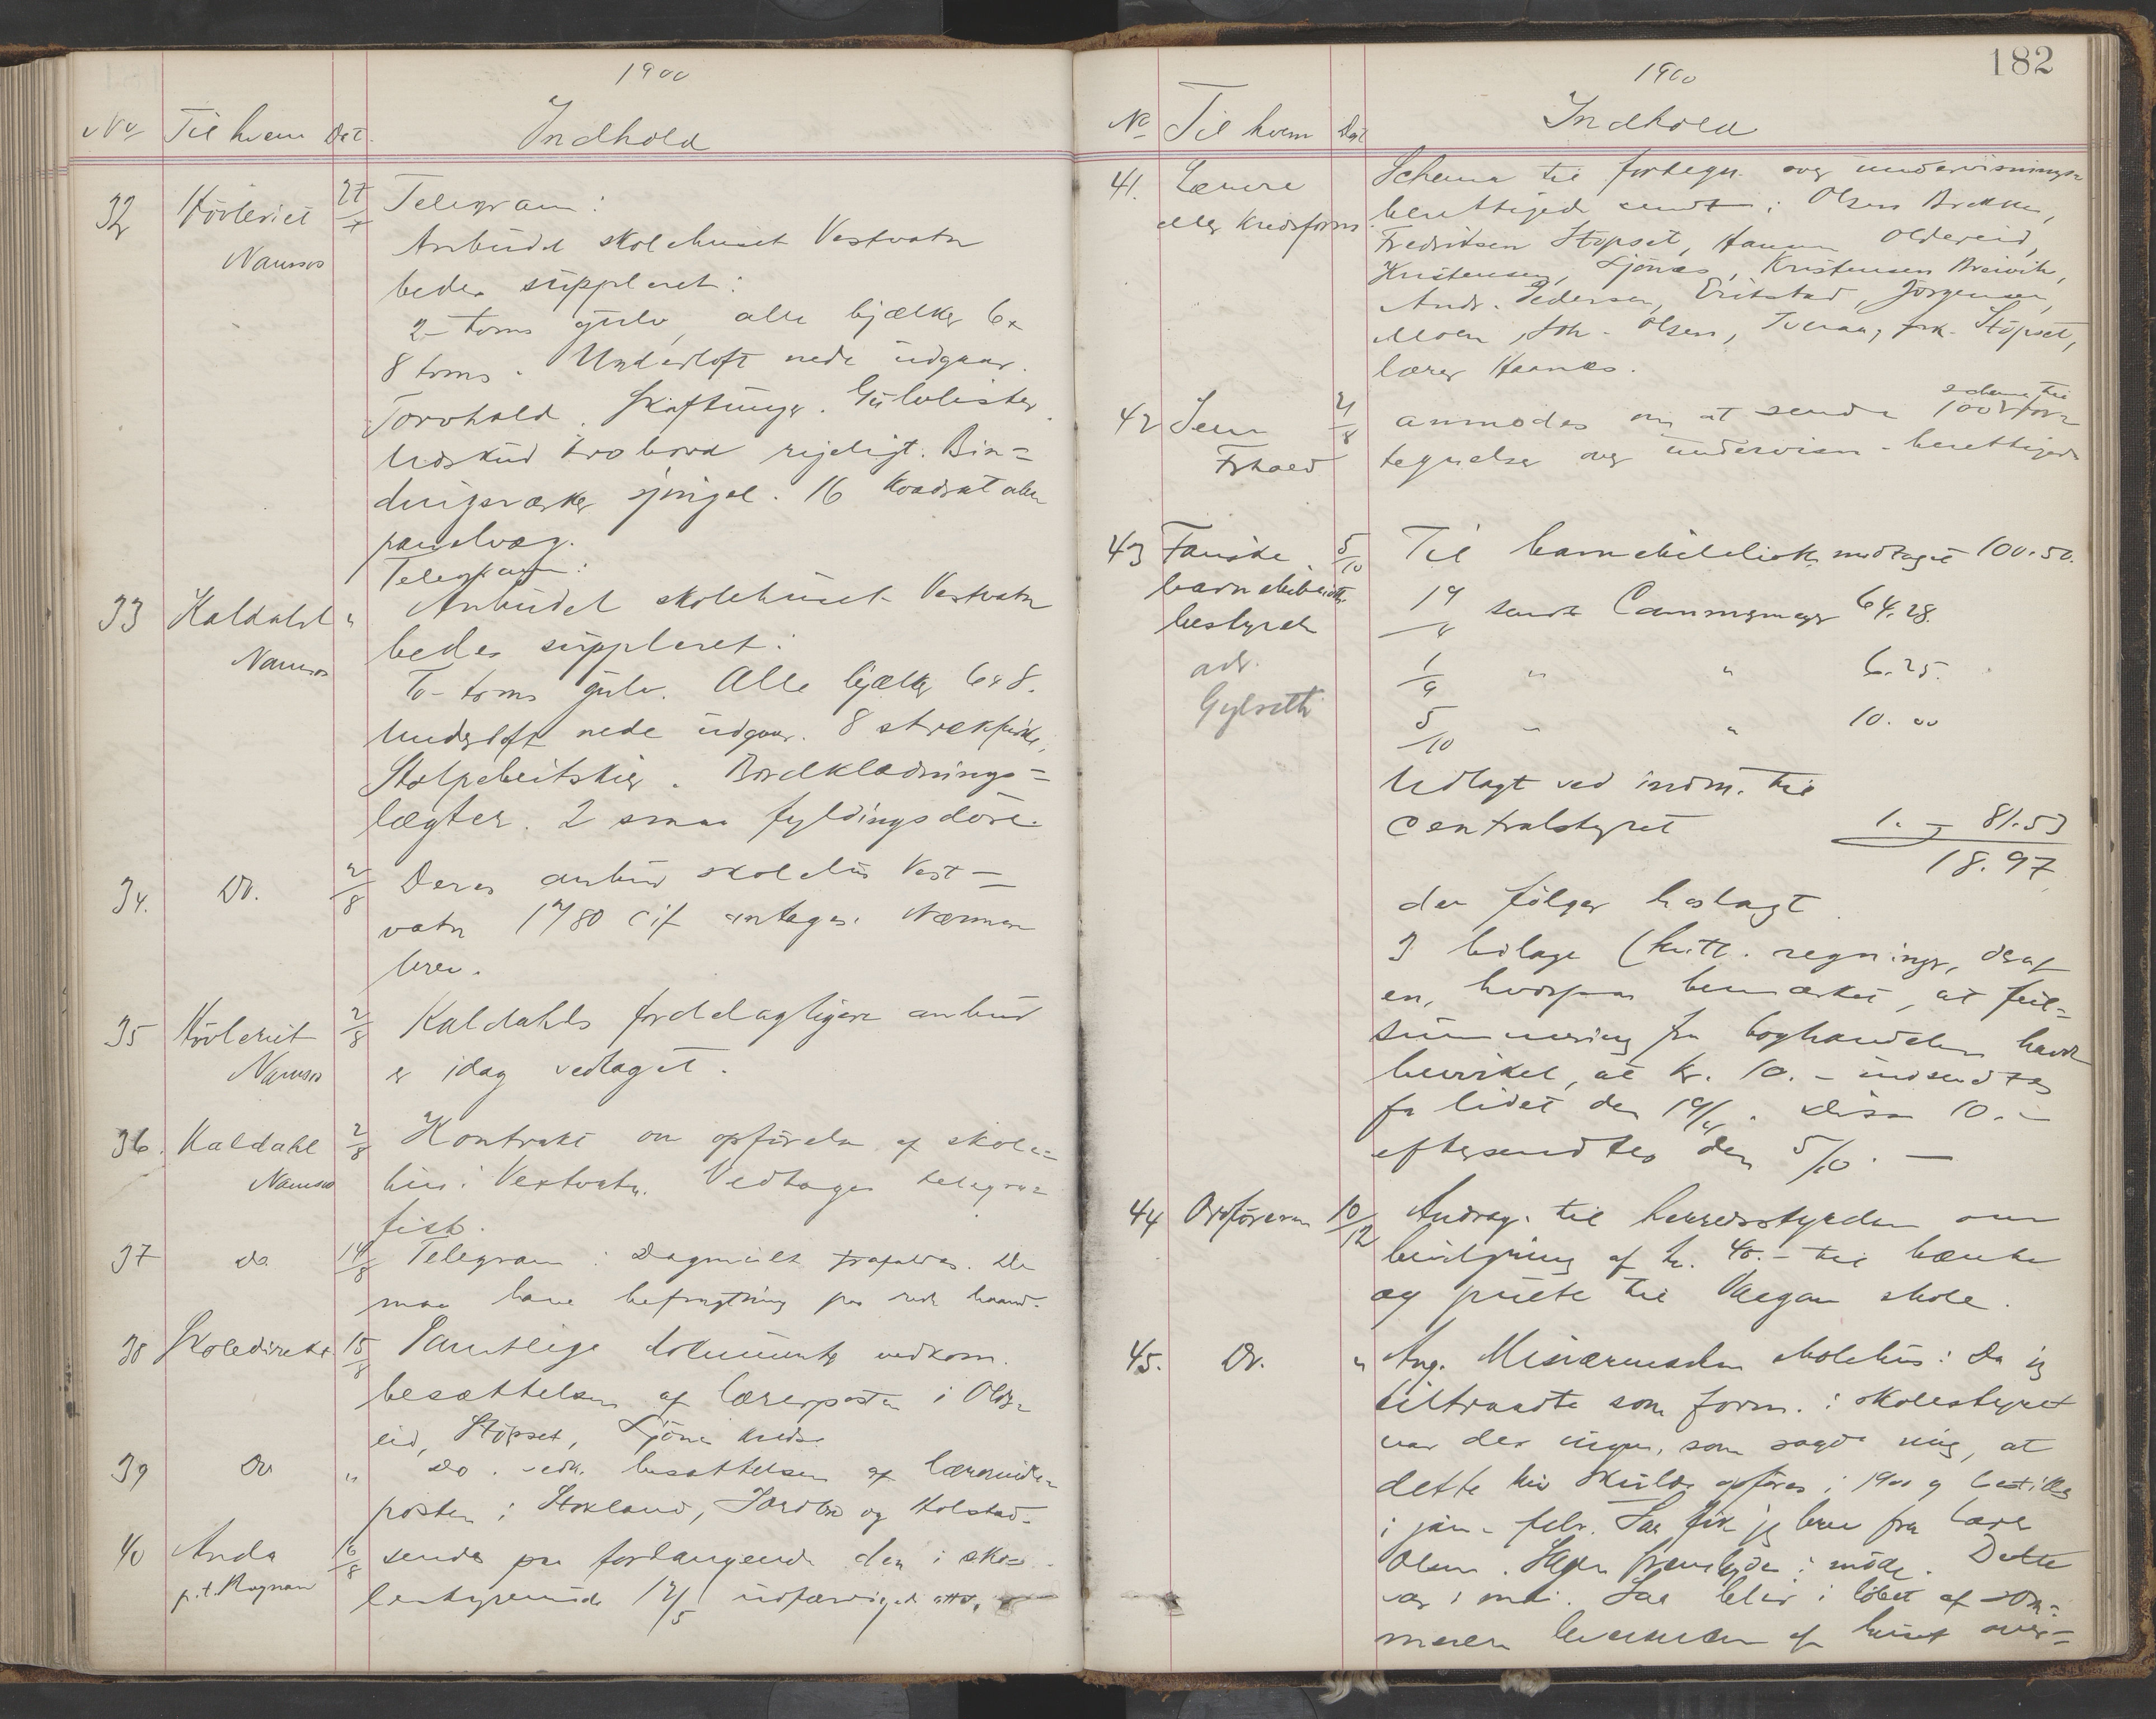 1900
No Til hvem Dat. Indhold
32 Høvleriet 27/7 Telegram:
Namsos Anbudet skolehuset Vestvatn
bedes suppleret:
2-toms gulv, alle bjælker 6x
8 toms. Underloft nede udgaar.
Torvhold. Skaftunger. Gulvlister.
Udskud trobord rigeligt. Bin=
dingsværker sjingel. 16 kvadratalen
panelvæg.
Telegram:
33 Kaldahl " Anbudet skolehuset Vestvatn
Namsos bedes suppleret:
To-toms gulv. Alle bjælker 6x8.
Underloft nede udgaar. 8 strækfiske,
Stolpebeitskier. Bordklædnings=
lægter. 2 smaa fyldingsdøre.
34. Do. 2/8 Deres anbud skolehus Vest-
vatn 1780 cif antages. Nærmere
brev.
35 Høvleriet 2/8 Kaldahls fordelagtigere anbud
Namsos er idag vedtaget.
36. Kaldahl 2/8 Kontrakt om opførelse af skole=
Namsos hus i Vestvatn. Vedtages telegra=
fisk.
37 do 14/8 Telegram: Dagmulkt frafaldes. De
maa have befragtning paa rede haand.
38 Skoledirekt. 15/8 Samtlige dokumenter vedkom.
besættelsen af lærerposten i Older=
eid, Støpset, Sjønes kredse
39 Do " Do. vedk. besættelsen af lærerinde=
posten i Stokland, Jordbro og Kolstad.
40 Anda 16/8 sendes paa forlangende den i sko=
p.t. Rognan lestyremøde 12/5 udfærdigede att.
182
1900
No Til hvem Dat Indhold
41. Lærere Schema til fortegn. over undervisnings=
eller kredsform. berettigede sendt: Olsen Brekke,
Fredriksen Støpset, Hansen Oldereid,
Kristensen, Sjønes, Kristensen Breivik,
Andr. Pedersen, Eritstad, Jørgensen,
Moen, Joh. Olsen, Tveraa, frk. Støpset,
lærer Haanes.
schema til
42 Sem 21/8 anmodes om at sende 100 for=
Frhald tegnelse over undervisn-berettigede
43 Fauske 5/10 Til barnebibliotek modtaget 100.50.
barnebiblioth. 19/4 sendt Cammermeyer 64.28.
bestyrelse 1/9 " " 6.25.
adr. 5/10 " " 10.00
Gylseth Udlagt ved indm. til
Centralstyret 1. - 81.53
18.97
der følger hoslagt.
3 bilage (kvitt. regninger, deraf
en, hvorpaa bemærket, at feil=
summering fra boghandelen havde
bevirket, at kr. 10.- indsendtes
for lidet den 19/4. Disse 10.-
eftersendtes den 5/10.-
44 Ordføreren 10/12 Andrag. til herredsstyrelsen om
bevilgning af kr. 40.- til bænke
og pulte til Vaagan skole.
45. Do. " Ang. Misværmsden skolehus: Da jeg
tiltraadte som form. i skolestyret
var der ingen, som sagde mig, at
dette hus skulde opføres i 1900 og bestilles
i jan.-febr. Saa fik jeg brev fra lærer
Olsen. Sagen fremlagdes i møde. Dette
var i mai. Saa blev i løbet af som=
meren leverancen af huset over=